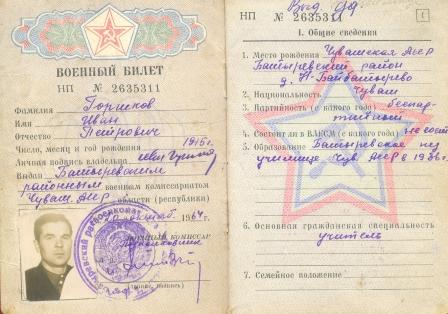 ВОЕННЫЙ БИЛЕТ
НП № 2635311
Фамилия Горшков
Имя Иван
Отчество Петрович
Число, месяц и год рождения 1915 г.
Личная подпись владельца
Выдан Батыревским
районным военным комиссариатом
Чуваш. АССР области (республики)
196 г.
Военный комиссар
Подполковник
(чин, подпись)
НП № 2635311
1
I. Общие сведения
1. Место рождения Чувашская АССР
Батыревский район
д. Н-Байбатырево
2. Национальность чуваш
3. Партийность (с какого года) беспар-
тийный
4. Состоит ли в ВЛКСМ (с какого года) не сост
5. Образование Батыревское пед
училище Чув. АССР в 1936 г.
6. Основная гражданская специальность
учитель
7. Семейное положение